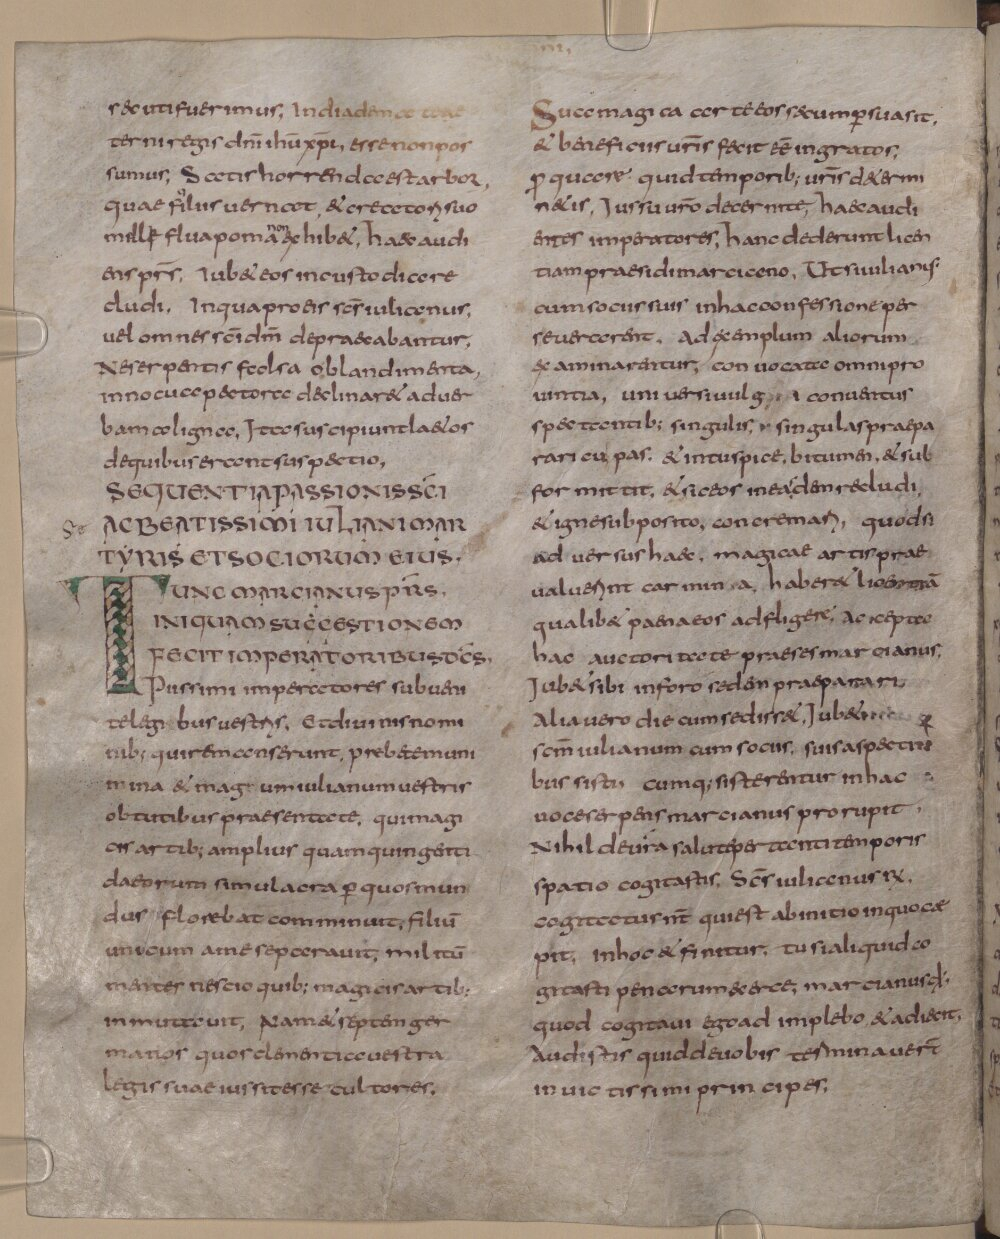 secuti fuerimus, In diadema
terni regis dn̄i ih̄u xp̄i, esse non pos
sumus; Satis horrenda est arbor,
quae filius vernat, & creatorem suo
flua poma exhib&, haec audi
ens prs̄. Iub& eos in custodia re
cludi. In qua proeis sc̄s iulianus,
vel omnes sc̄i dm̄ depraecabantur,
Ne serpentis foelsa oblandimenta,
innocua pectora declinar& ad ver
bam coligna. Ita suscipiunt la&os
de quibus erant suspectio,
SEQUENTIA PASSIONIS SC̄I
AC BEATISSIMI IULIANI MAR
TYRIS ET SOCIORUM EIUS.
TUNC MARCIANUS PRS̄.
INIQUAM SUGGESTIONEM
FECIT IMPERATORIBUS DC̄S,
Piissimi imperatores subveni
te legibus vestris, Et divinis nomi
nib; qui rem conserunt, prebete muni
mina & magnum iulianum vestris
obtutibus praesentate, qui magi
cis artib; amplius quam quingenti
daeorum simulacra p quos mun
dus florebat comminuit, filiū
unicum a me separavit, militū
mentes nescio quib; magicis artib;
inmutavit, Nam & septen ger
manos quos clementia vestra
legis suae iussit esse cultores.
Sua magica arte eos secum psuasit,
& beneficiis vr̄is fecit eē ingratos;
p qua re quid temporib; vr̄is de ermi
n&is, Iussu vr̄o decernite, haec audi
entes imperatores, hanc dederunt licen
tiam praesidi marciano, Ut si iulianus
cum sociis suis in hac confessione per
severarent. Ad exemplum aliorum
examinarentur, convocata omni pro
vintia, universi vulgi conventus
spectantib; singulis, singulas praepa
rari cupas. & intus pice, bitumen, & sul
for mittit, & sic eos in eadem recludi,
& igne subposito, concremari, quod si
adversus haec, magicae artis prae
valuerint carmina, haber& licentiā
qualib& paena eos adfligere, Accepta
hac auctoritate praeses marcianus,
Iub& sibi in foro sedem praeparari,
Alia vero die cum sediss&, Iub&
sc̄m iulianum cum sociis, suis aspecti
bus sisti, cumq; sisterentur in hac
voce serpens marcianus prorupit,
Nihil de vr̄a salute per tanti temporis
spatio cogitastis, Sc̄s iulianus ꝶ.
cogitatus nr̄ qui est ab initio in quo cæ
pit, in hoc & finitur, tu si aliquid co
gitasti penarum exerce, marcianus d:
quod cogitavi ego adimplebo, & adiecit,
Audistis quid de vobis terminaverī
invictissimi principes,